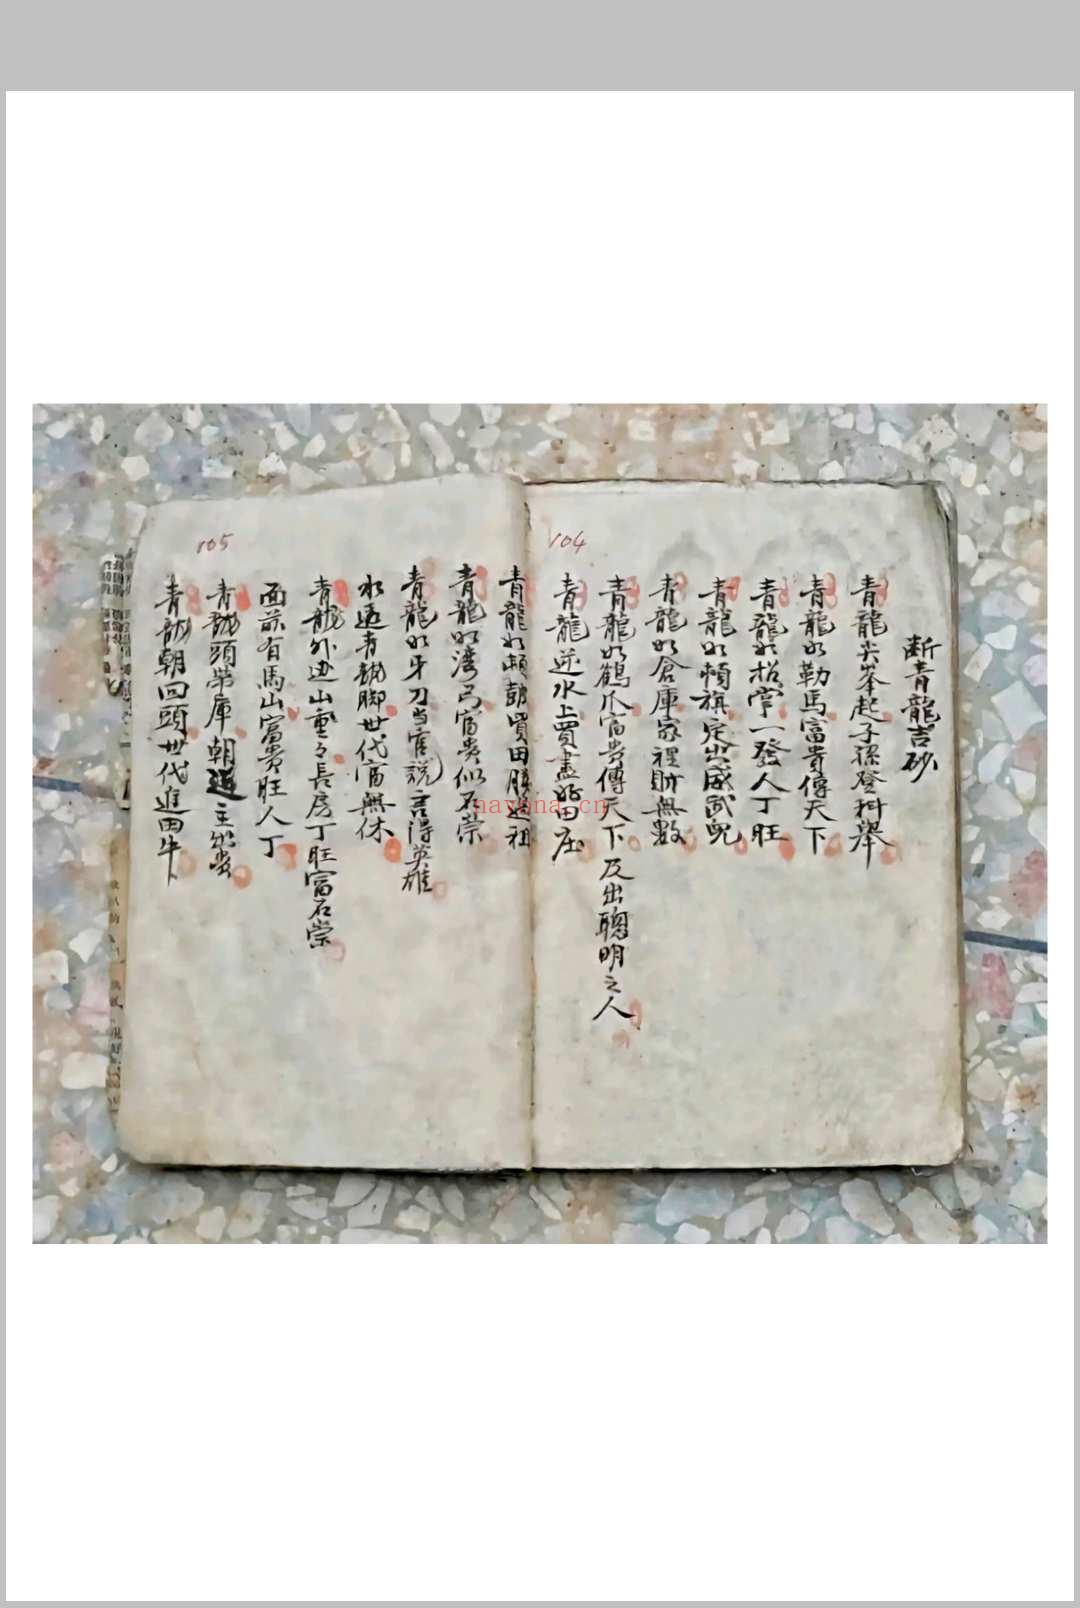 104
斷青龍吉砂
青龍尖峯起子孫登科舉
青龍如勒馬富貴傳天下
青龍如指掌一發人丁旺
青龍如頓旗定出威武兒
青龍如倉庫家裡財無數
青龍如鶴爪富貴傳天下及出聰明之人
青龍逆水上買盡好田庄
105
青龍如頓鼓買田勝过祖
青龍如湾弓富貴似石崇
青龍如牙刀当官説言得英雄
水遶青龍脚世代富無休
青龍外边山重々長房丁旺富石崇
面前有馬山富貴旺人丁
青龍頭帶庫朝 主出貴
青龍朝回頭世代進田牛
nayona.cn